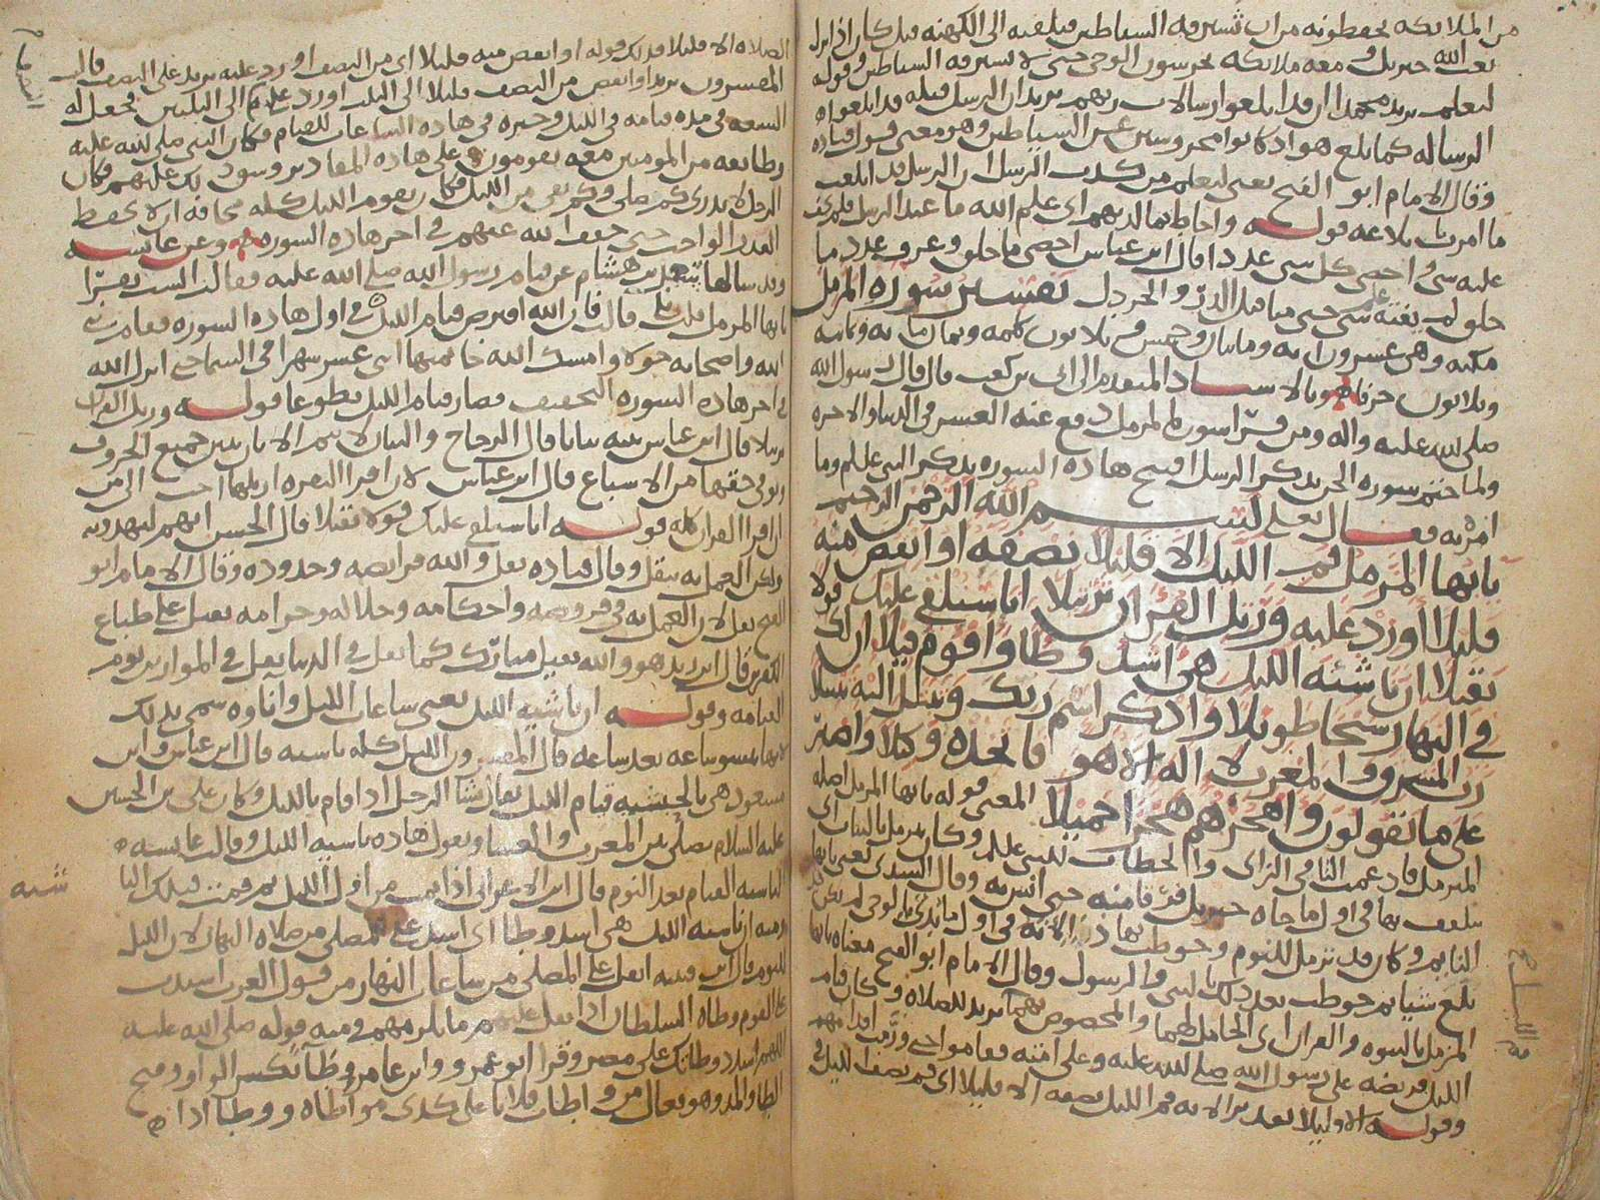 من الملائكة يحفظونه من ان تسترقه الشياطين فيلقيه الى الكهنة قيل كان اذا نزل
بعث الله جبريل ومعه ملائكة يحرسون الوحي حتى لا تسترقه الشياطين وقوله
ليعلم يريد محمدا ان قد ابلغوا رسالات ربهم يريد ان الرسل قبله قد ابلغوا
الرساله كما بلغ هو اذ كانوا محروسين عن الشياطين وهو معنى قول قتاده
وقال الامام ابو الفتح يعني ليعلم من كذب الرسل ان الرسل قد ابلغت
ما امرت بلاغه قوله واحاط بما لديهم اى علم الله ما عند الرسل فلم يخف
عليه شى واحصى كل شى عددا قال ابن عباس احصى ما خلق وعرف عدد ما
خلق لم يفته علم شى حتى مثاقيل الذر والخردل تفسير سوره المزمل
مكيه وهى عشرون ايه ومايتان وخمس وثلاثون كلمه وثمان مايه وثمانيه
وثلاثون حرفا وبالاسناد المتقدم الى ابى بن كعب قال قال رسول الله
صلى الله عليه واله ومن قرا سوره المزمل دفع عنه العسر فى الدنيا والاخره
ولما ختم سوره الجن بذكر الرسل افتتح هاذه السوره بذكر النبى عليلم وما
امر به فقال تعلى بسم الله الرحمن الرحيم
يايها المزمل قم الليل الا قليلا نصفه او انقص منه
قليلا او زد عليه ورتل القران ترتيلا انا سنلقى عليك قولا
ثقيلا ان ناشئه الليل هى اشد وطا واقوم قيلا ان لك
فى النهار سبحا طويلا واذكر اسم ربك وتبتل اليه تبتيلا
رب المشرق والمغرب لا اله الا هو فاتخذه وكيلا واصبر
على ما يقولون واهجرهم هجرا جميلا المعنى قوله يايها المزمل اصله
المتزمل فادغمت التا فى الزاى والخطاب للنبى عليلم وكان يتزمل بالثياب اى
يتلفف بها فى اول ما جاه جبريل فرقا منه حتى انس به وقال السدى يعنى يايها
النايم وكان قد تزمل للنوم وخوطب بهاذا لانه فى اول ما بدى بالوحى لم يكن
بلغ شيا ثم خوطب بعد ذلك بالنبى والرسول وقال الامام ابو الفتح معناه يايها
المزمل بالنبوه والقران اى الحامل لهما والمخصوص بهما يريد للصلاه وكان قيام
الليل فريضه على رسول الله صلى الله عليه وعلى امته فقاموا حتى ورمت اقدامهم
وقوله الا قليلا تقدير الايه قم الليل نصفه الا قليلا اى قم نصف الليل فى
الصلاه الا قليلا فذلك قوله او انقص منه قليلا اى من النصف او زد عليه يريد على النصف قال
المفسرون يريد او انقص من النصف قليلا الى الثلث او زد عليه الى الثلثين فجعل له
السعه فى مده قيامه فى الليل وخيره فى هاذه الساعات للقيام فكان النبى صلى الله عليه
وطائفه من المومنين معه يقومون على هاذه المقادير وشق ذلك عليهم فكان
الرجل لا يدرى كم صلى وكم بقى من الليل فكان يقوم الليل كله مخافه ان لا يحفظ
القدر الواجب حتى خفف الله عنهم فى اخر هاذه السوره وعن عائشه
وقد سالها سعد بن هشام عن قيام رسول الله صلى الله عليه فقالت الست تقرا
يايها المزمل قلت بلى قالت فان الله افترض قيام الليل فى اول هاذه السوره فقام نبى
الله واصحابه حولا وامسك الله خاتمتها اثنى عشر شهرا فى السما حتى انزل الله
فى اخر هاذه السوره التخفيف فصار قيام الليل تطوعا قوله ورتل القران
ترتيلا قال ابن عباس بينه بيانا قال الزجاج والبيان لا يتم الا بان يبين جميع الحروف
ويوفى حقها من الاشباع قال ابن عباس لان اقرا البقره ارتلها احب الى من
ان اقرا القران كله قوله انا سنلقى عليك قولا ثقيلا قال الحسن انهم ليهذونه
ولكن العمل به ثقيل وقال قتاده ثقل والله فرايضه وحدوده وقال الامام ابو
الفتح ثقل لان العمل به فى فروضه واحكامه وحلاله وحرامه ثقيل على طباع
الكفر قال ابن زيد هو والله ثقيل مبارك كما ثقل فى الدنيا ثقل فى الموازين يوم
القيامه وقوله ان ناشيه الليل يعنى ساعات الليل واناوه سمى بذلك
لانها تنشو ساعه بعد ساعه قال المفسرون الليل كله ناشيه قال ابن عباس وابن
مسعود هى بالحبشيه قيام الليل يقال نشا الرجل اذا قام بالليل وكان على بن الحسين
عليه السلام يصلى بين المغرب والعشا ويقول هاذه ناشيه الليل وقالت عايشه
الناشيه القيام بعد النوم قال ابن الاعرابى اذا نمت من اول الليل ثم قمت فتلك النا
شيه
ومنه ان ناشيه الليل هى اشد وطا اى اشد على المصلى من صلاه النهار لان الليل
للنوم قال ابن قتيبه اثقل على المصلى من ساعات النهار من قول العرب اشتدت
على القوم وطاه السلطان اذا ثقل عليهم ما يلزمهم ومنه قوله صلى الله عليه
اللهم اشدد وطاتك على مضر وقرا ابو عمرو وابن عامر وطآ بكسر الواو وفتح
الطا والمد وهو يقال من واطات فلانا على كذى مواطاه ووطا اذا